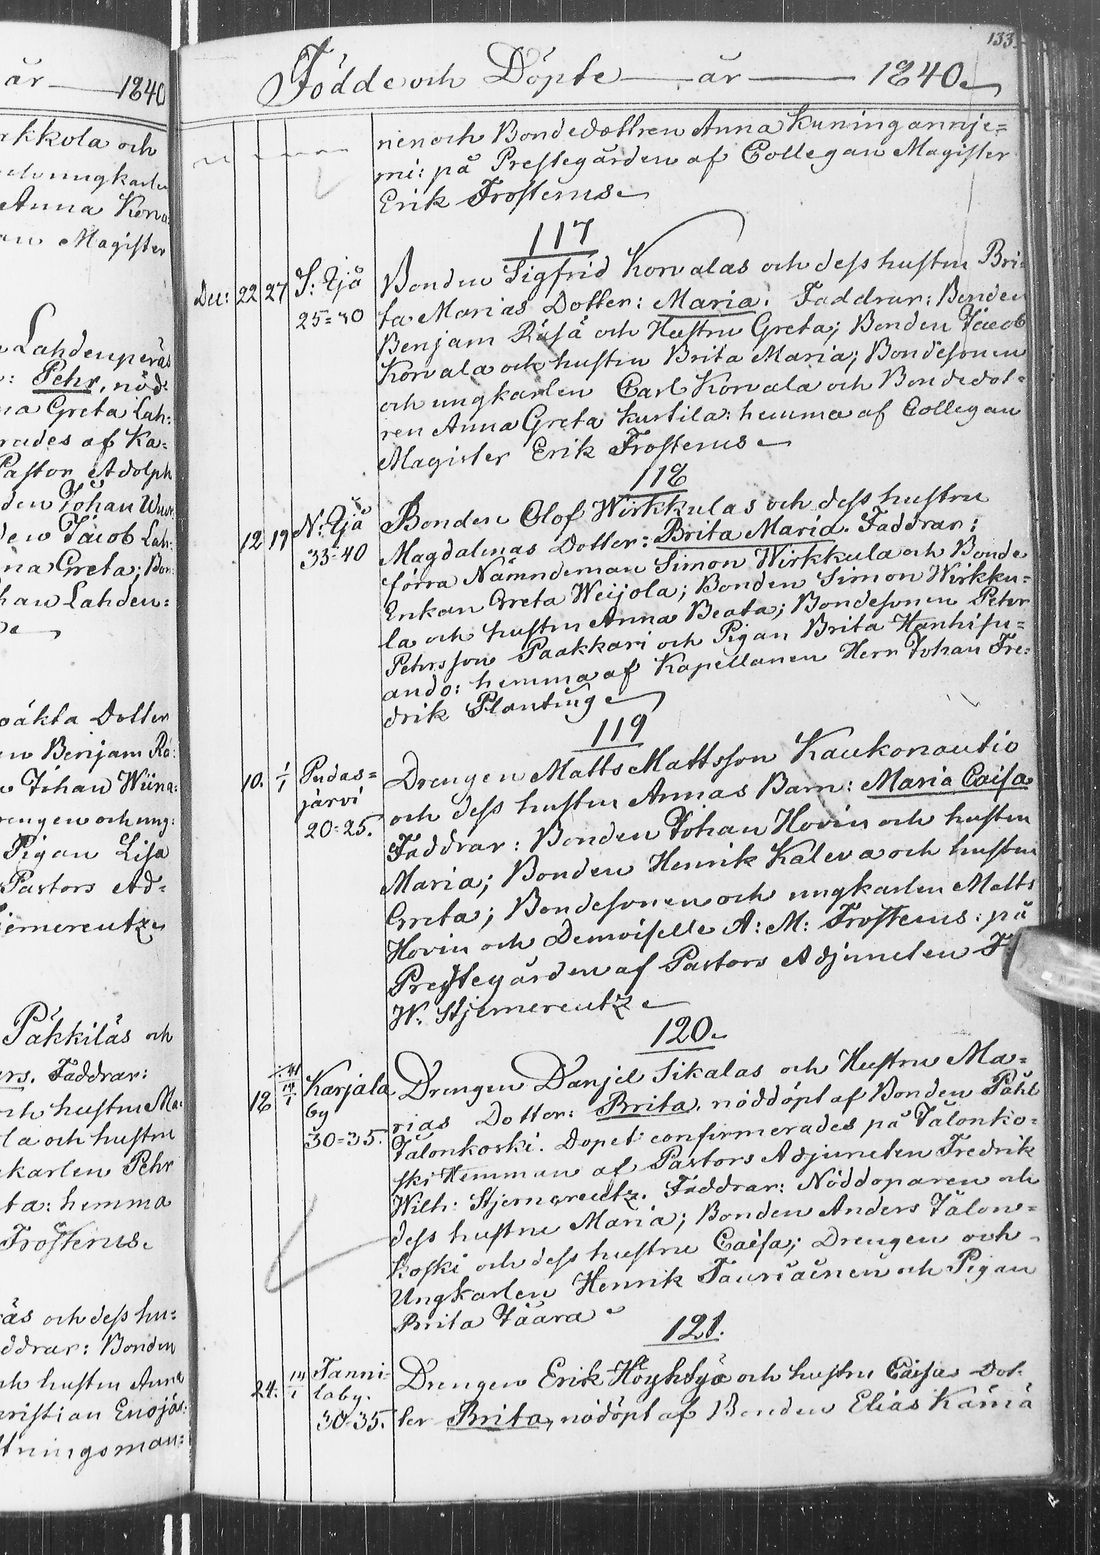 år 1840
rkkola och
ungkarlen
Anna Korva
Magister
Lahdenperäs
: Pehr, nöd:
na Greta Lah:
rades af Ka=
Pastor Adolph
den Johan
den Jacob Lah:
na Greta; Bon:
han Lahden:
oäkta Dotter
en Benjam Rä:
Johan Wiina:
rengen och ung:
Pigan Lisa
Pastors Ad=
Stjernereutz
Päkkiläs och
ers. Faddrar:
och hustru Ma:
la och hustru
karlen Pehr
ta: hemma
Frosterus.
äs och dess hu:
ddrar: Bonden
ch hustru Anna
hristian Ensjäs:
ttningsman:
133.
Födde och Döpte år 1840
rien och Bondedottren Anna Kuningannje=
mi: på Prestegården af Collegan Magister
Erik Frosterus
117
Dec: 22 27 S: Ijå 25=30
Bonden Sigfrid Korvalas och dess hustru Bri=
ta Marias Dotter: Maria. Faddrar: Bonden
Benjam Räsä och Hustru Greta; Bonden Jacob
Korvala och hustru Brita Maria; Bondesonen
och ungkarlen Carl Korvala och Bondedot=
ren Anna Greta Kurtila: hemma af Collegan
Magister Erik Frosterus
118
12 19 N: Ijå 35-40
Bonden Olof Wirkkulas och dess hustru
Magdalenas Dotter: Brita Maria. Faddrar:
förra Nämndeman Simon Wirkkula och Bonde
Enkan Greta Weijola; Bonden Simon Wirkku=
la och hustru Anna Beata; Bondesonen Petter
Pehrsson Paakkari och Pigan Brita Hanhisu=
ando: hemma af Kapellanen Herr Johan Fre=
drik Planting
119
10. 1/1 Pudas=
järvi
20-25.
Drengen Matts Mattsson Kaukonautio
och dess hustru Annas Barn: Maria Caisa
Faddrar: Bonden Johan Hovin och hustru
Maria; Bonden Henrik Kaleva och hustru
Greta; Bondesonen och ungkarlen Matts
Hovin och Demoiselle A: M: Frosterus: på
Prestegården af Pastors Adjuncten F.
W. Stjernereutz
120.
12 14/1 Karjala
by
30=35.
Drengen Danjel Sikalas och Hustru Ma=
rias Dotter: Brita. nöddöpt af Bonden Påhl
Jalonkoski. Dopet confirmerades på Jalonko=
ski Hemman af Pastors Adjuncten Fredrik
Wilh: Stjernereutz. Faddrar: Nöddöparen och
dess hustru Maria; Bonden Anders Jalon=
koski och dess hustru Caisa; Drengen och
Ungkarlen Henrik Tauriainen och Pigan
Brita Jäära
121.
24. 14/1 Tanni=
laby.
30-35.
Drengen Erik Höyhtyä och hustru Caisas Dot=
ter Brita, nöddöpt af Bonden Elias Kämä